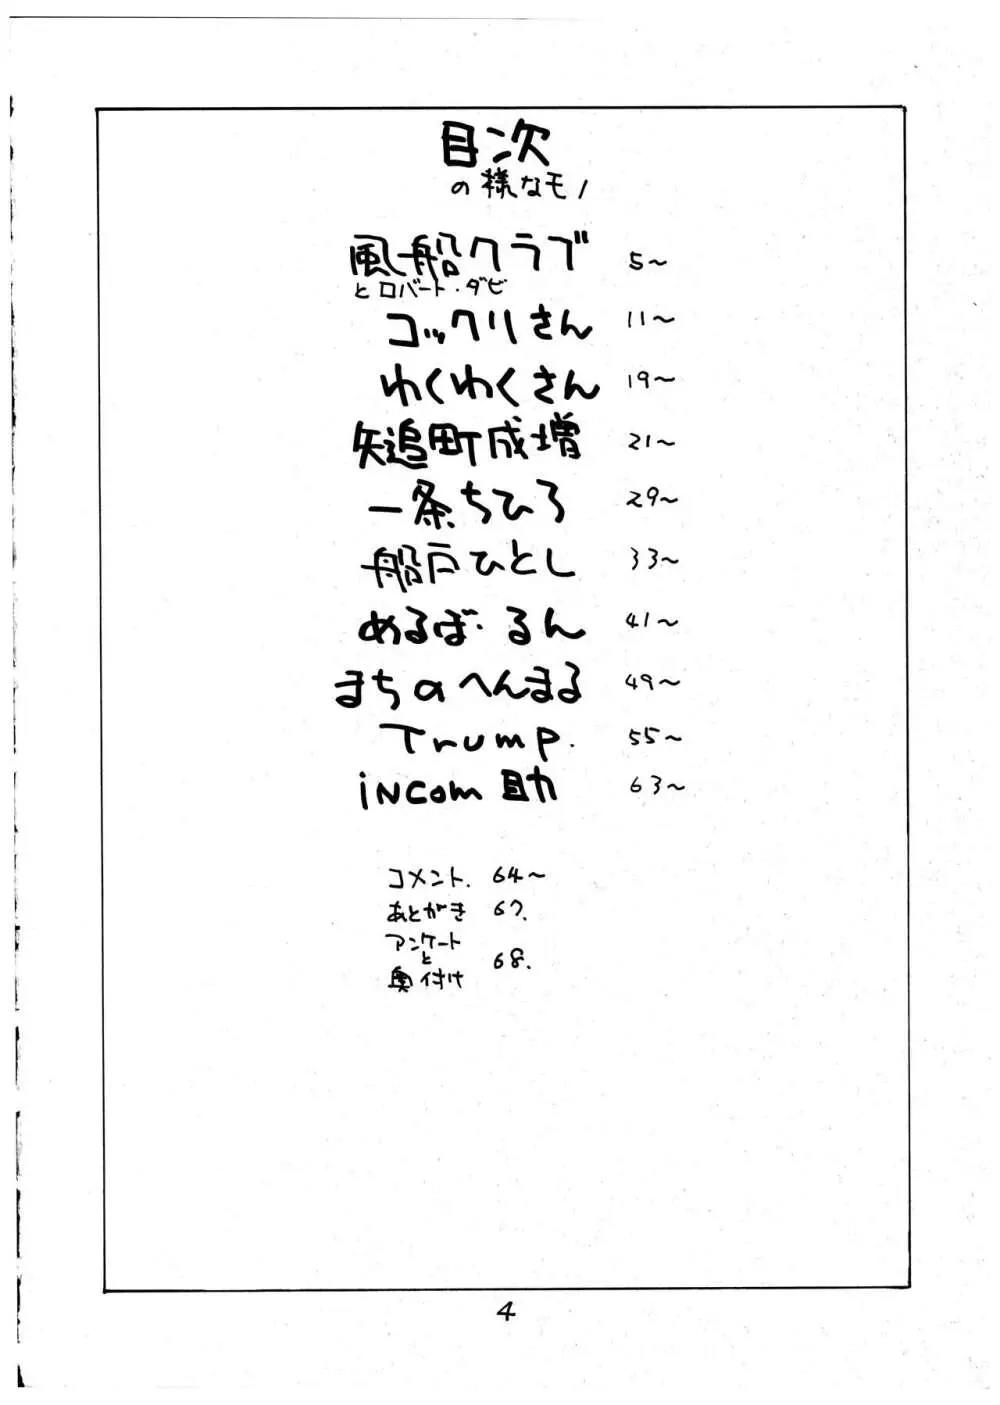 目次
の様なモノ
風船クラブ 5～
とロバート・ダビ
コックリさん 11～
わくわくさん 19～
矢追町成増 21～
一条ちひろ 29～
船戸ひとし 33～
めるば・るん 41～
まちのへんまる 49～
Trump. 55～
iNCom助 63～
コメント. 64～
あとがき 67.
アンケート
と 68.
奥付け
4